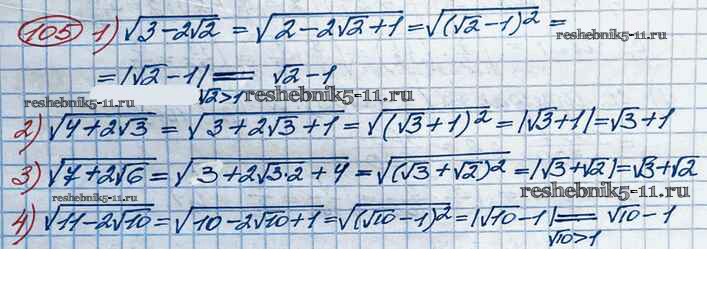 105 1) √(3-2√2) = √(2-2√2+1) = √((√2-1)²) =
reshebnik5-11.ru
= |√2-1| = √2-1
√2>1 reshebnik5-11.ru
reshebnik5-11.ru
2) √(4+2√3) = √(3+2√3+1) = √((√3+1)²) = |√3+1| = √3+1
3) √(7+2√6) = √(3+2√3·2+4) = √((√3+√2)²) = |√3+√2| = √3+√2
reshebnik5-11.ru
reshebnik5-11.ru
4) √(11-2√10) = √(10-2√10+1) = √((√10-1)²) = |√10-1| = √10-1
√10>1